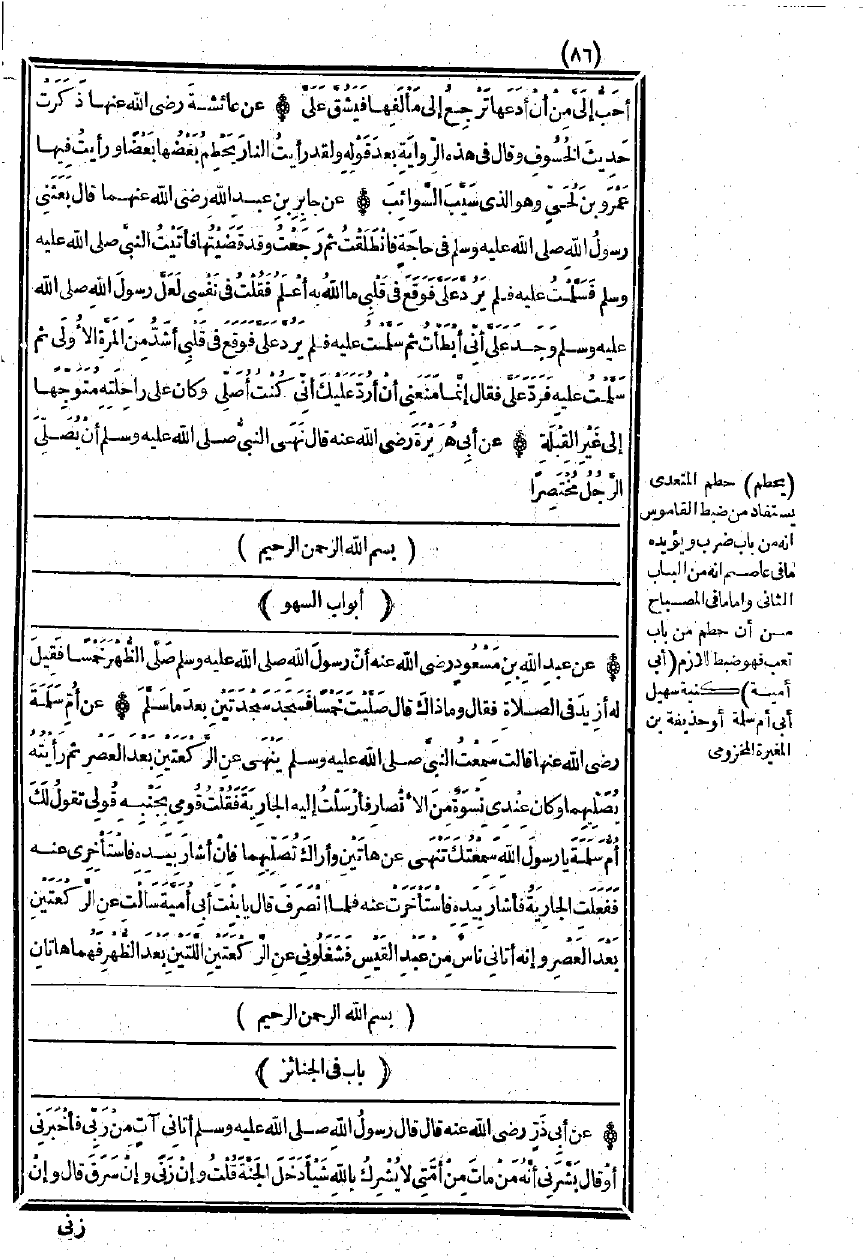 (٨٦)
أَحَبُّ إِلَىَّ مِنْ أَنْ أَدَعَهَا تَرْجِعُ إِلى مَأْلَفِهَا فَيَشُقَّ عَلَىَّ ۞ عن عائشةَ رضى الله عنها ذَكَرَتْ
حَدِيثَ الخُسُوفِ وقال فى هذه الرِّوايَةِ بعدَ قَوْلِهِ ولقد رأيتُ النارَ يَحْطِمُ بَعْضُها بَعْضًا ورأيتُ فيها
عَمْرَو بنَ لُحَىٍّ وهو الذى سَيَّبَ السَّوائِبَ ۞ عن جابِرِ بنِ عبدِ الله رضى الله عنهما قال بَعَثَنِى
رسولُ الله صلى الله عليه وسلم فى حاجَةٍ فَانْطَلَقْتُ ثم رَجَعْتُ وقد قَضَيْتُها فأتَيْتُ النبىَّ صلى الله عليه
وسلم فَسَلَّمْتُ عليه فلم يَرُدَّ عَلَىَّ فَوَقَعَ فى قَلْبِى ما اللهُ به أعْلَمُ فَقُلْتُ فى نَفْسِى لَعَلَّ رسولَ اللهِ صلى الله
عليه وسلم وَجَدَ عَلَىَّ أَنِّى أَبْطَأْتُ ثم سَلَّمْتُ عليه فلم يَرُدَّ عَلَىَّ فوَقَعَ فى قَلْبِى أَشَدُّ مِنَ المَرَّةِ الأُولَى ثم
سَلَّمْتُ عليه فَرَدَّ عَلَىَّ فقال إنَّما مَنَعَنِى أنْ أَرُدَّ عليكَ أَنِّى كُنْتُ أُصَلِّى وكان على راحِلَتِهِ مُتَوَجِّهًا
إِلى غَيْرِ القِبْلَةِ ۞ عن أبى هُرَيْرَةَ رضى الله عنه قال نَهَى النبىُّ صلى الله عليه وسلم أَنْ يُصَلِّىَ
الرَّجُلُ مُخْتَصِرًا
( بسم الله الرحمن الرحيم )
( أبواب السهو )
۞ عن عبدِ اللهِ بنِ مَسْعُودٍ رضى الله عنه أنّ رسولَ الله صلى الله عليه وسلم صَلَّى الظُّهْرَ خَمْسًا فقِيلَ
له أَزِيدَ فى الصلاةِ فقال وماذاكَ قال صَلَّيْتَ خَمْسًا فسَجَدَ سَجْدَتَيْنِ بعدَ ماسَلَّمَ ۞ عن أُمِّ سَلَمَةَ
رضى الله عنها قالت سَمِعْتُ النبىَّ صلى الله عليه وسلم يَنْهَى عن الرَّكْعَتَيْنِ بعدَ العَصْرِ ثم رَأَيْتُه
يُصَلِّيهِما وكان عِنْدِى نِسْوَةٌ مِنَ الأَنْصارِ فأَرْسَلْتُ إليه الجارِيَةَ فَقُلْتُ قُومِى بِجَنْبِهِ قُولِى تقولُ لَكَ
أُمُّ سَلَمَةَ يا رسولَ اللهِ سَمِعْتُكَ تَنْهَى عن هاتَيْنِ وأَراكَ تُصَلِّيهِما فإنْ أشارَ بيَدِهِ فاسْتَأْخِرِى عنه
فَفَعَلَتِ الجارِيَةُ فأشارَ بِيَدِهِ فاسْتَأْخَرَتْ عنه فلما انْصَرَفَ قال يا بِنْتَ أبى أُمَيَّةَ سَأَلْتِ عن الرَّكْعَتَيْنِ
بَعْدَ العَصْرِ وإنه أتانِى ناسٌ مِنْ عَبْدِ القَيْسِ فشَغَلُونِى عن الرَّكْعَتَيْنِ اللَّتَيْنِ بعدَ الظُّهْرِ فَهُما هاتانِ
( بسم الله الرحمن الرحيم )
( باب فى الجنائز )
۞ عن أبى ذَرٍّ رضى الله عنه قال قال رسولُ الله صلى الله عليه وسلم أتانِى آتٍ مِنْ رَبِّى فأَخْبَرَنِى
أوقال بَشَّرَنِى أَنَّهُ مَنْ ماتَ مِنْ أُمَّتِى لا يُشْرِكُ باللهِ شَيْأً دَخَلَ الجَنَّةَ قُلْتُ وإنْ زَنَى وإنْ سَرَقَ قال وإنْ
زنى
(يحطم) حطم المتعدى
يستفاد من ضبط القاموس
انه من باب ضرب ويؤيده
مافى عاصم انه من الباب
الثانى وامامافى المصباح
مـن أن حطم من باب
تعب فهو ضبط اللازم (أبى
أمية) كنية سهيل
أبى أم سلمة أوحذيفة بن
المغيرة المخزومى